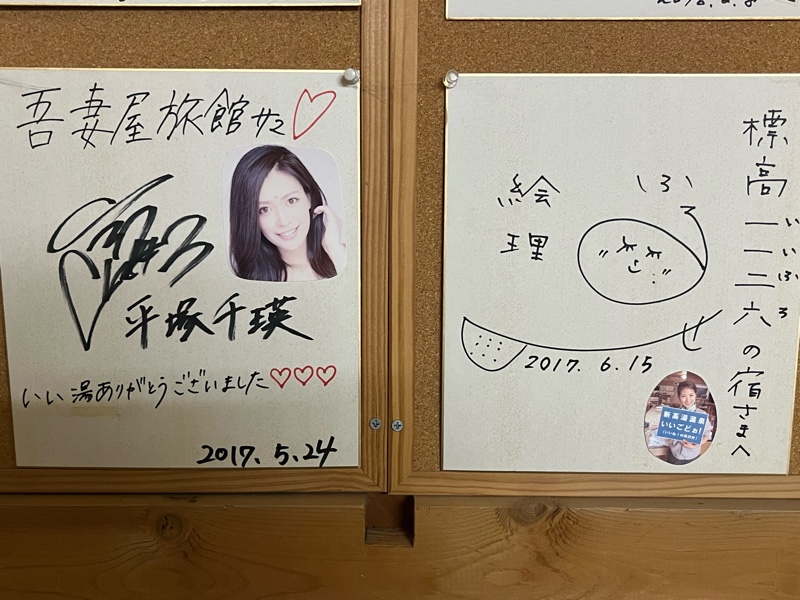 吾妻屋旅館サマ♡
平塚千瑛
いい湯ありがとうございました♡♡♡
2017.5.24
標高一一二六の宿さまへ
いいふろ
しふろ
絵理
2017.6.15
新高湯温泉
いいごどぉ!